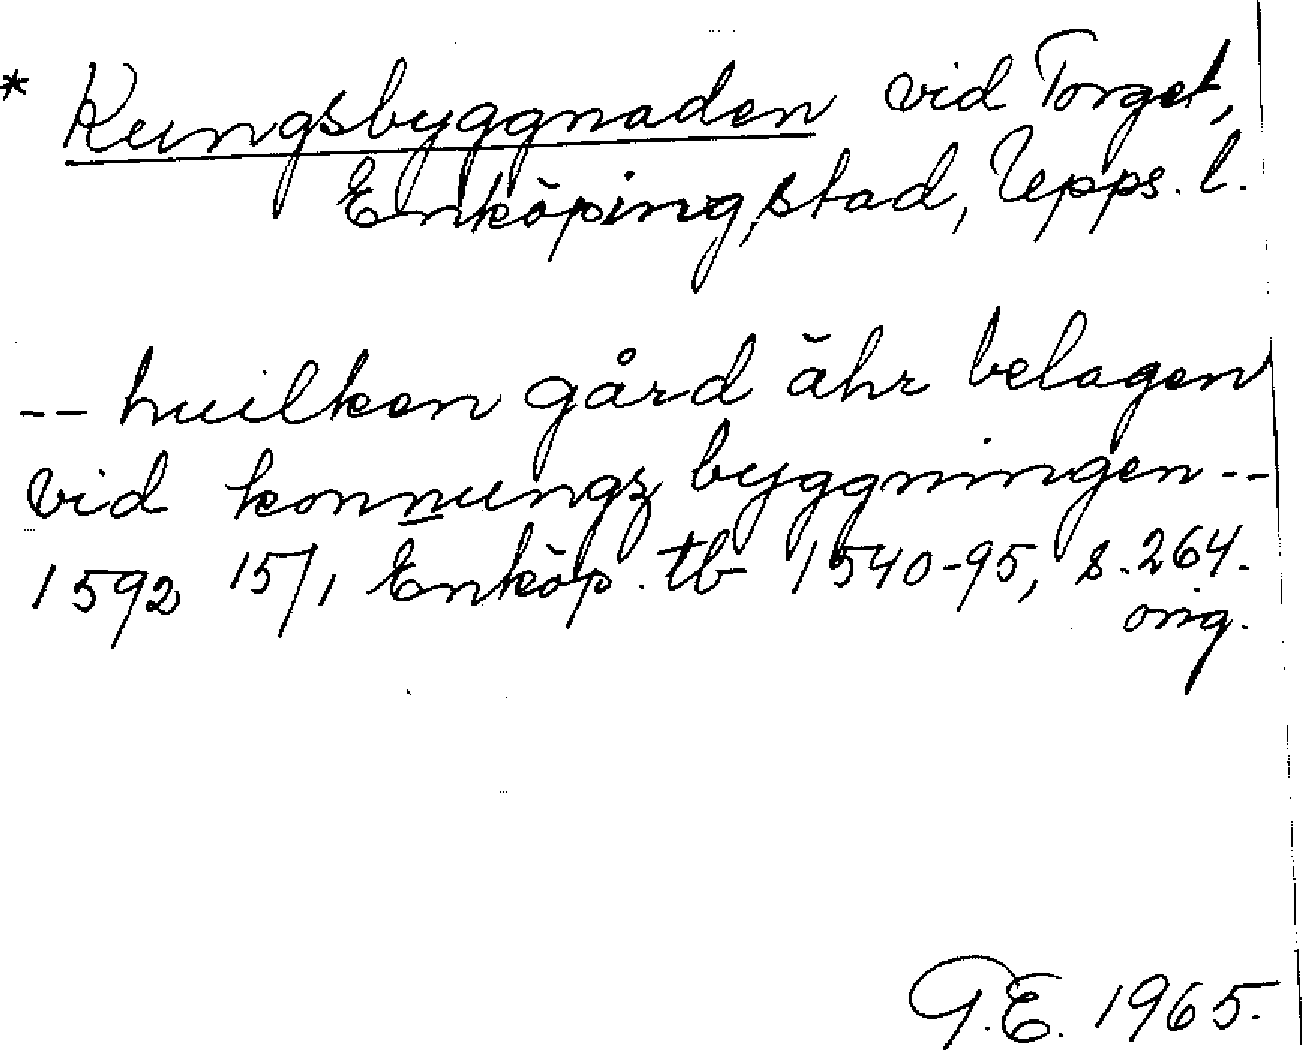 * Kungsbyggnaden vid Torget,
Enköping, stad, Upps. l.
-- huilken gård ähr belagen
vid konnungz byggningen --
1592 15/1 Enköp. tb 1540-95, s. 264.
orig.
G.E. 1965.